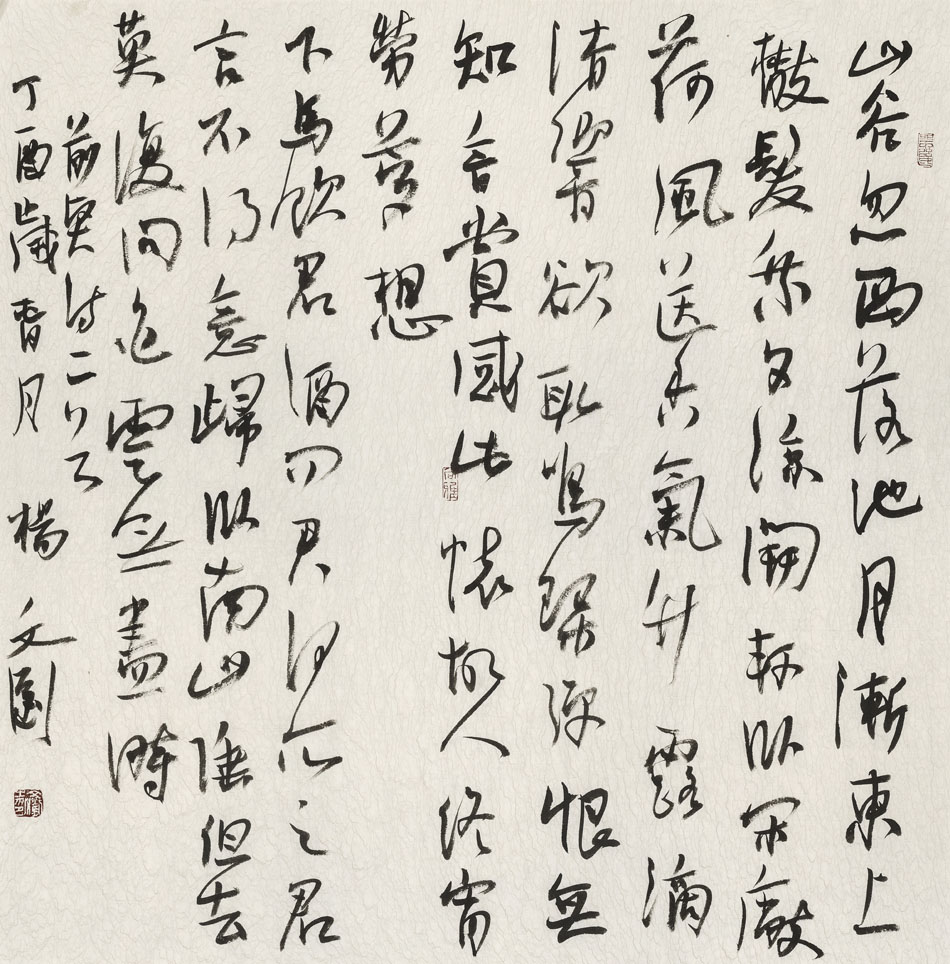 山谷忽西落池月漸東上
散髮乘夕涼開軒臥閑廠
荷風送香氣竹露滴
清響欲取鳴琴彈恨無
知音賞感此懷故人終宵
勞夢想
下馬飲君酒問君何所之君
言不得意歸臥南山陲但去
莫復問白雲無盡時
前賢詩二首
丁酉歲春月 楊文